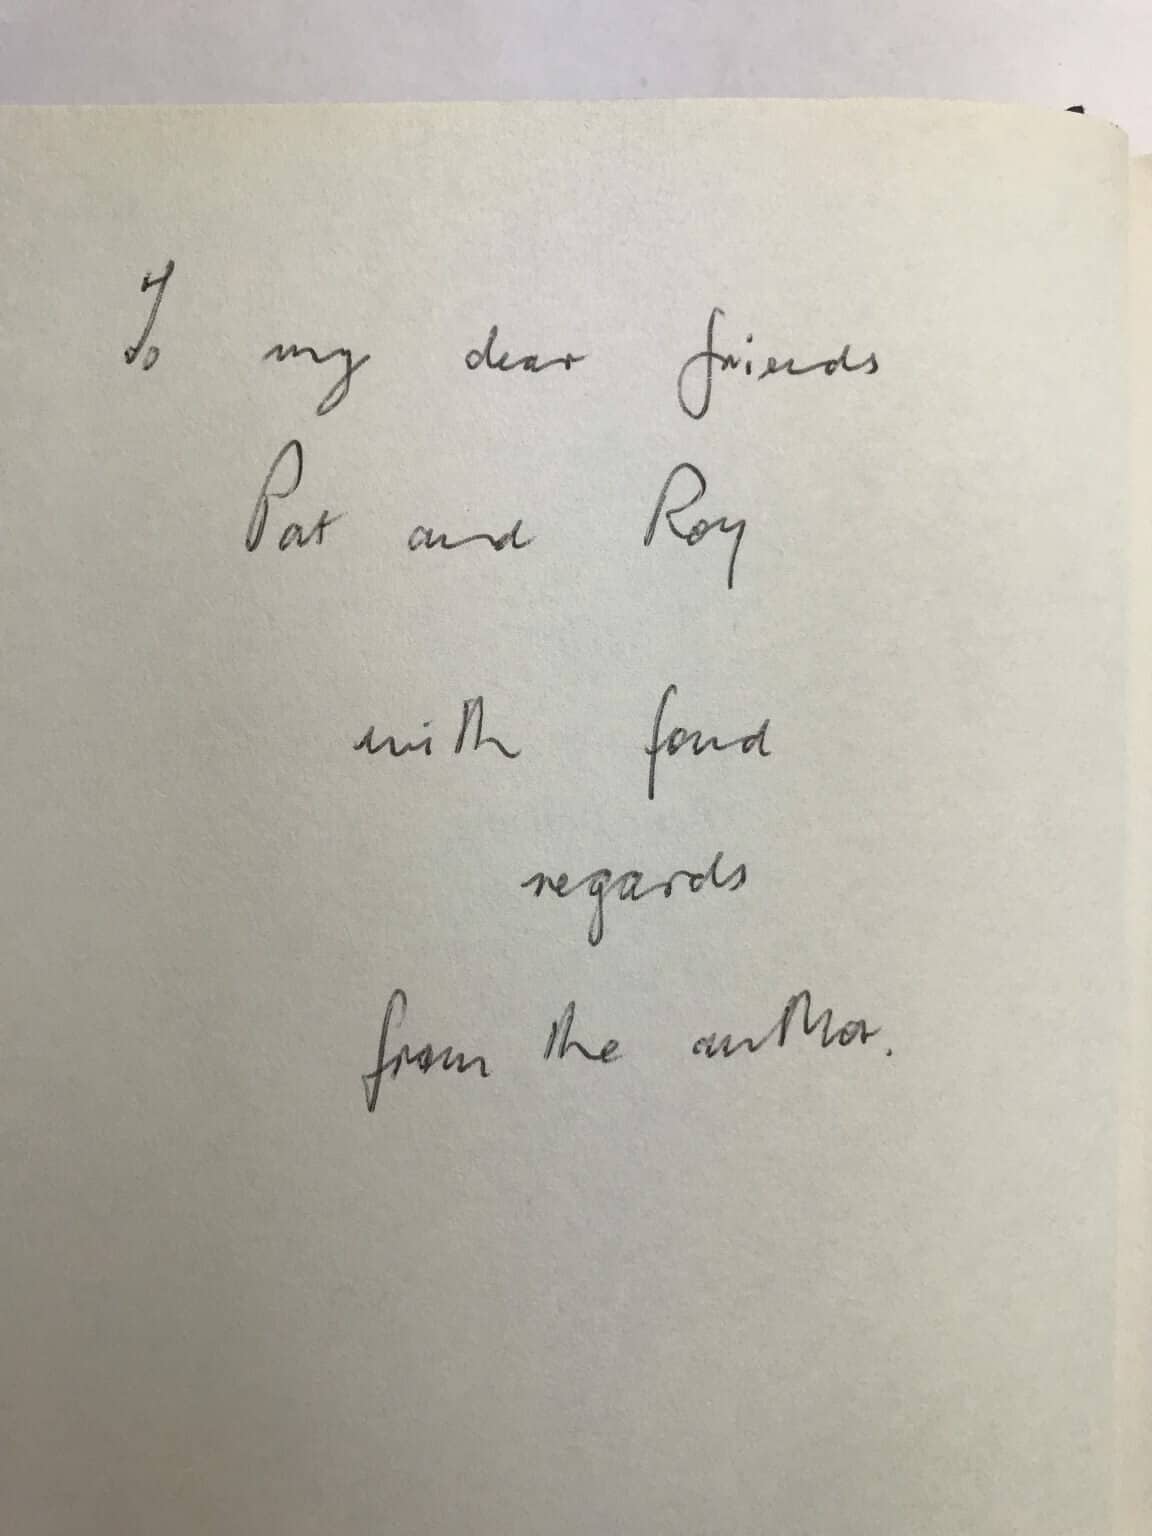 To my dear friends
Pat and Roy
with fond
regards
from the author.